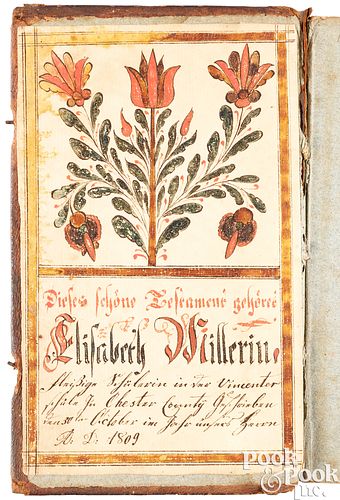 Dieses schöne Testament gehöret
Elisabeth Millerin.
fleysige Schülerin in der Vincenter
schule in Chester County Geschrieben
den October im Jahr unsers Herrn
A: D: 1809
Pook & Pook
INC.